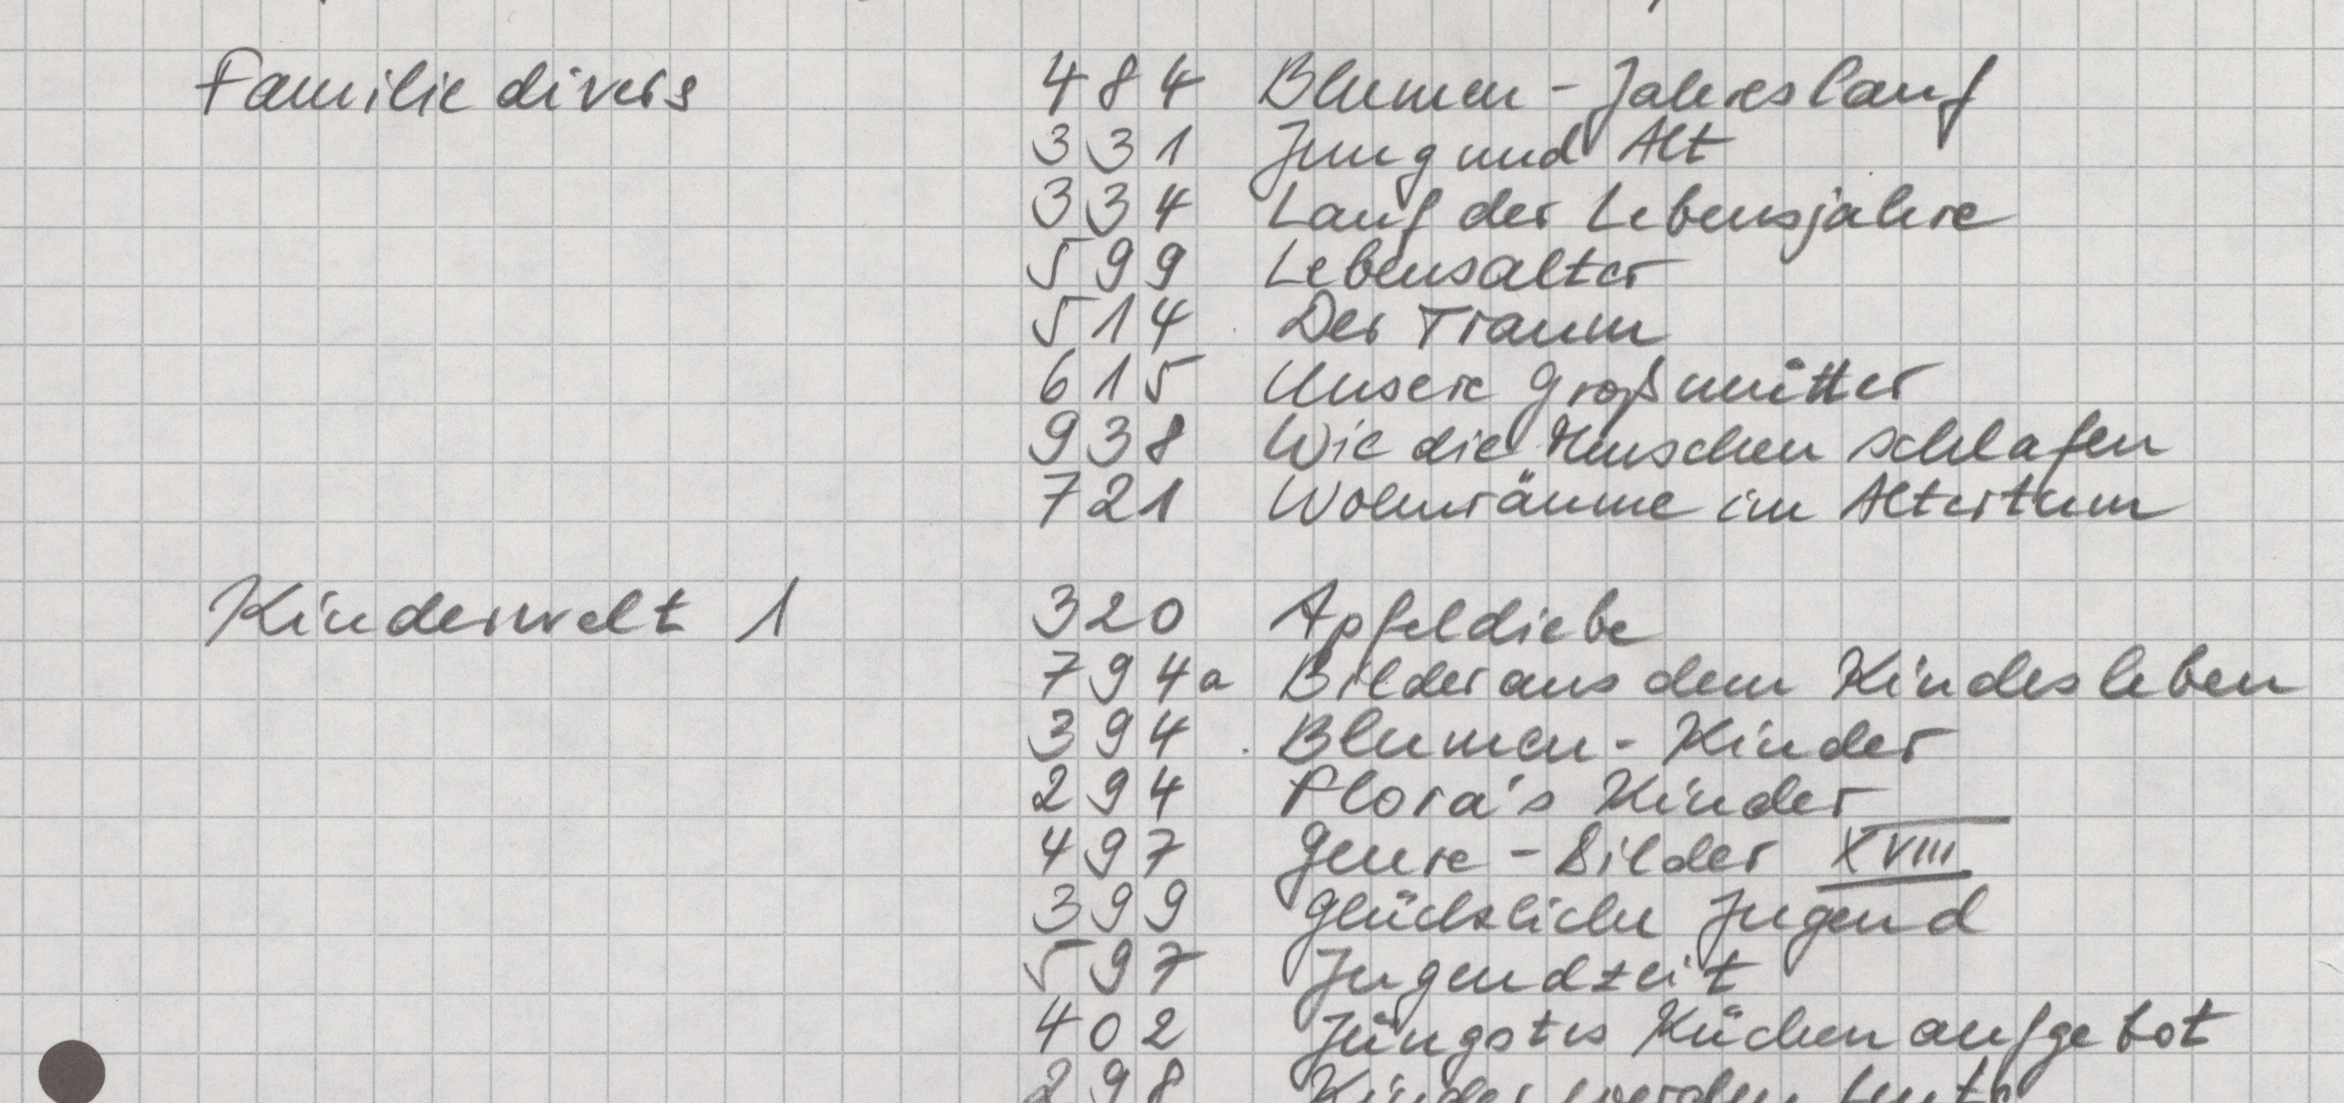 Familie divers 484 Blumen-Jahreslauf
331 Jung und Alt
334 Lauf der Lebensjahre
599 Lebensalter
514 Der Traum
615 Unsere Großmütter
938 Wie die Menschen schlafen
721 Wohnräume im Altertum
Kinderwelt 1 320 Apfeldiebe
794a Bilder aus dem Kindesleben
394 Blumen-Kinder
294 Flora's Kinder
497 Genre-Bilder XVIII
399 Glückliche Jugend
597 Jugendzeit
402 Jüngstes Küchenaufgebot
298 Kinder werden Leute